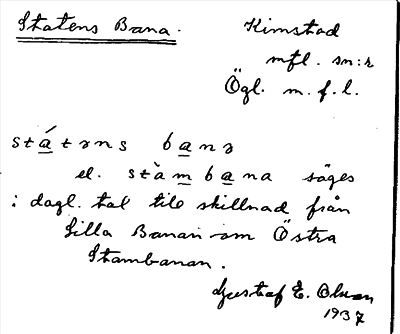 Statens Bana.
Kimstad
mfl. sn:r
Ögl. m.f.l.
státəns banə
el. stàmbana säges
i dagl. tal till skillnad från
Lilla Banan om Östra
Stambanan.
Gustaf E. Olsson
1937